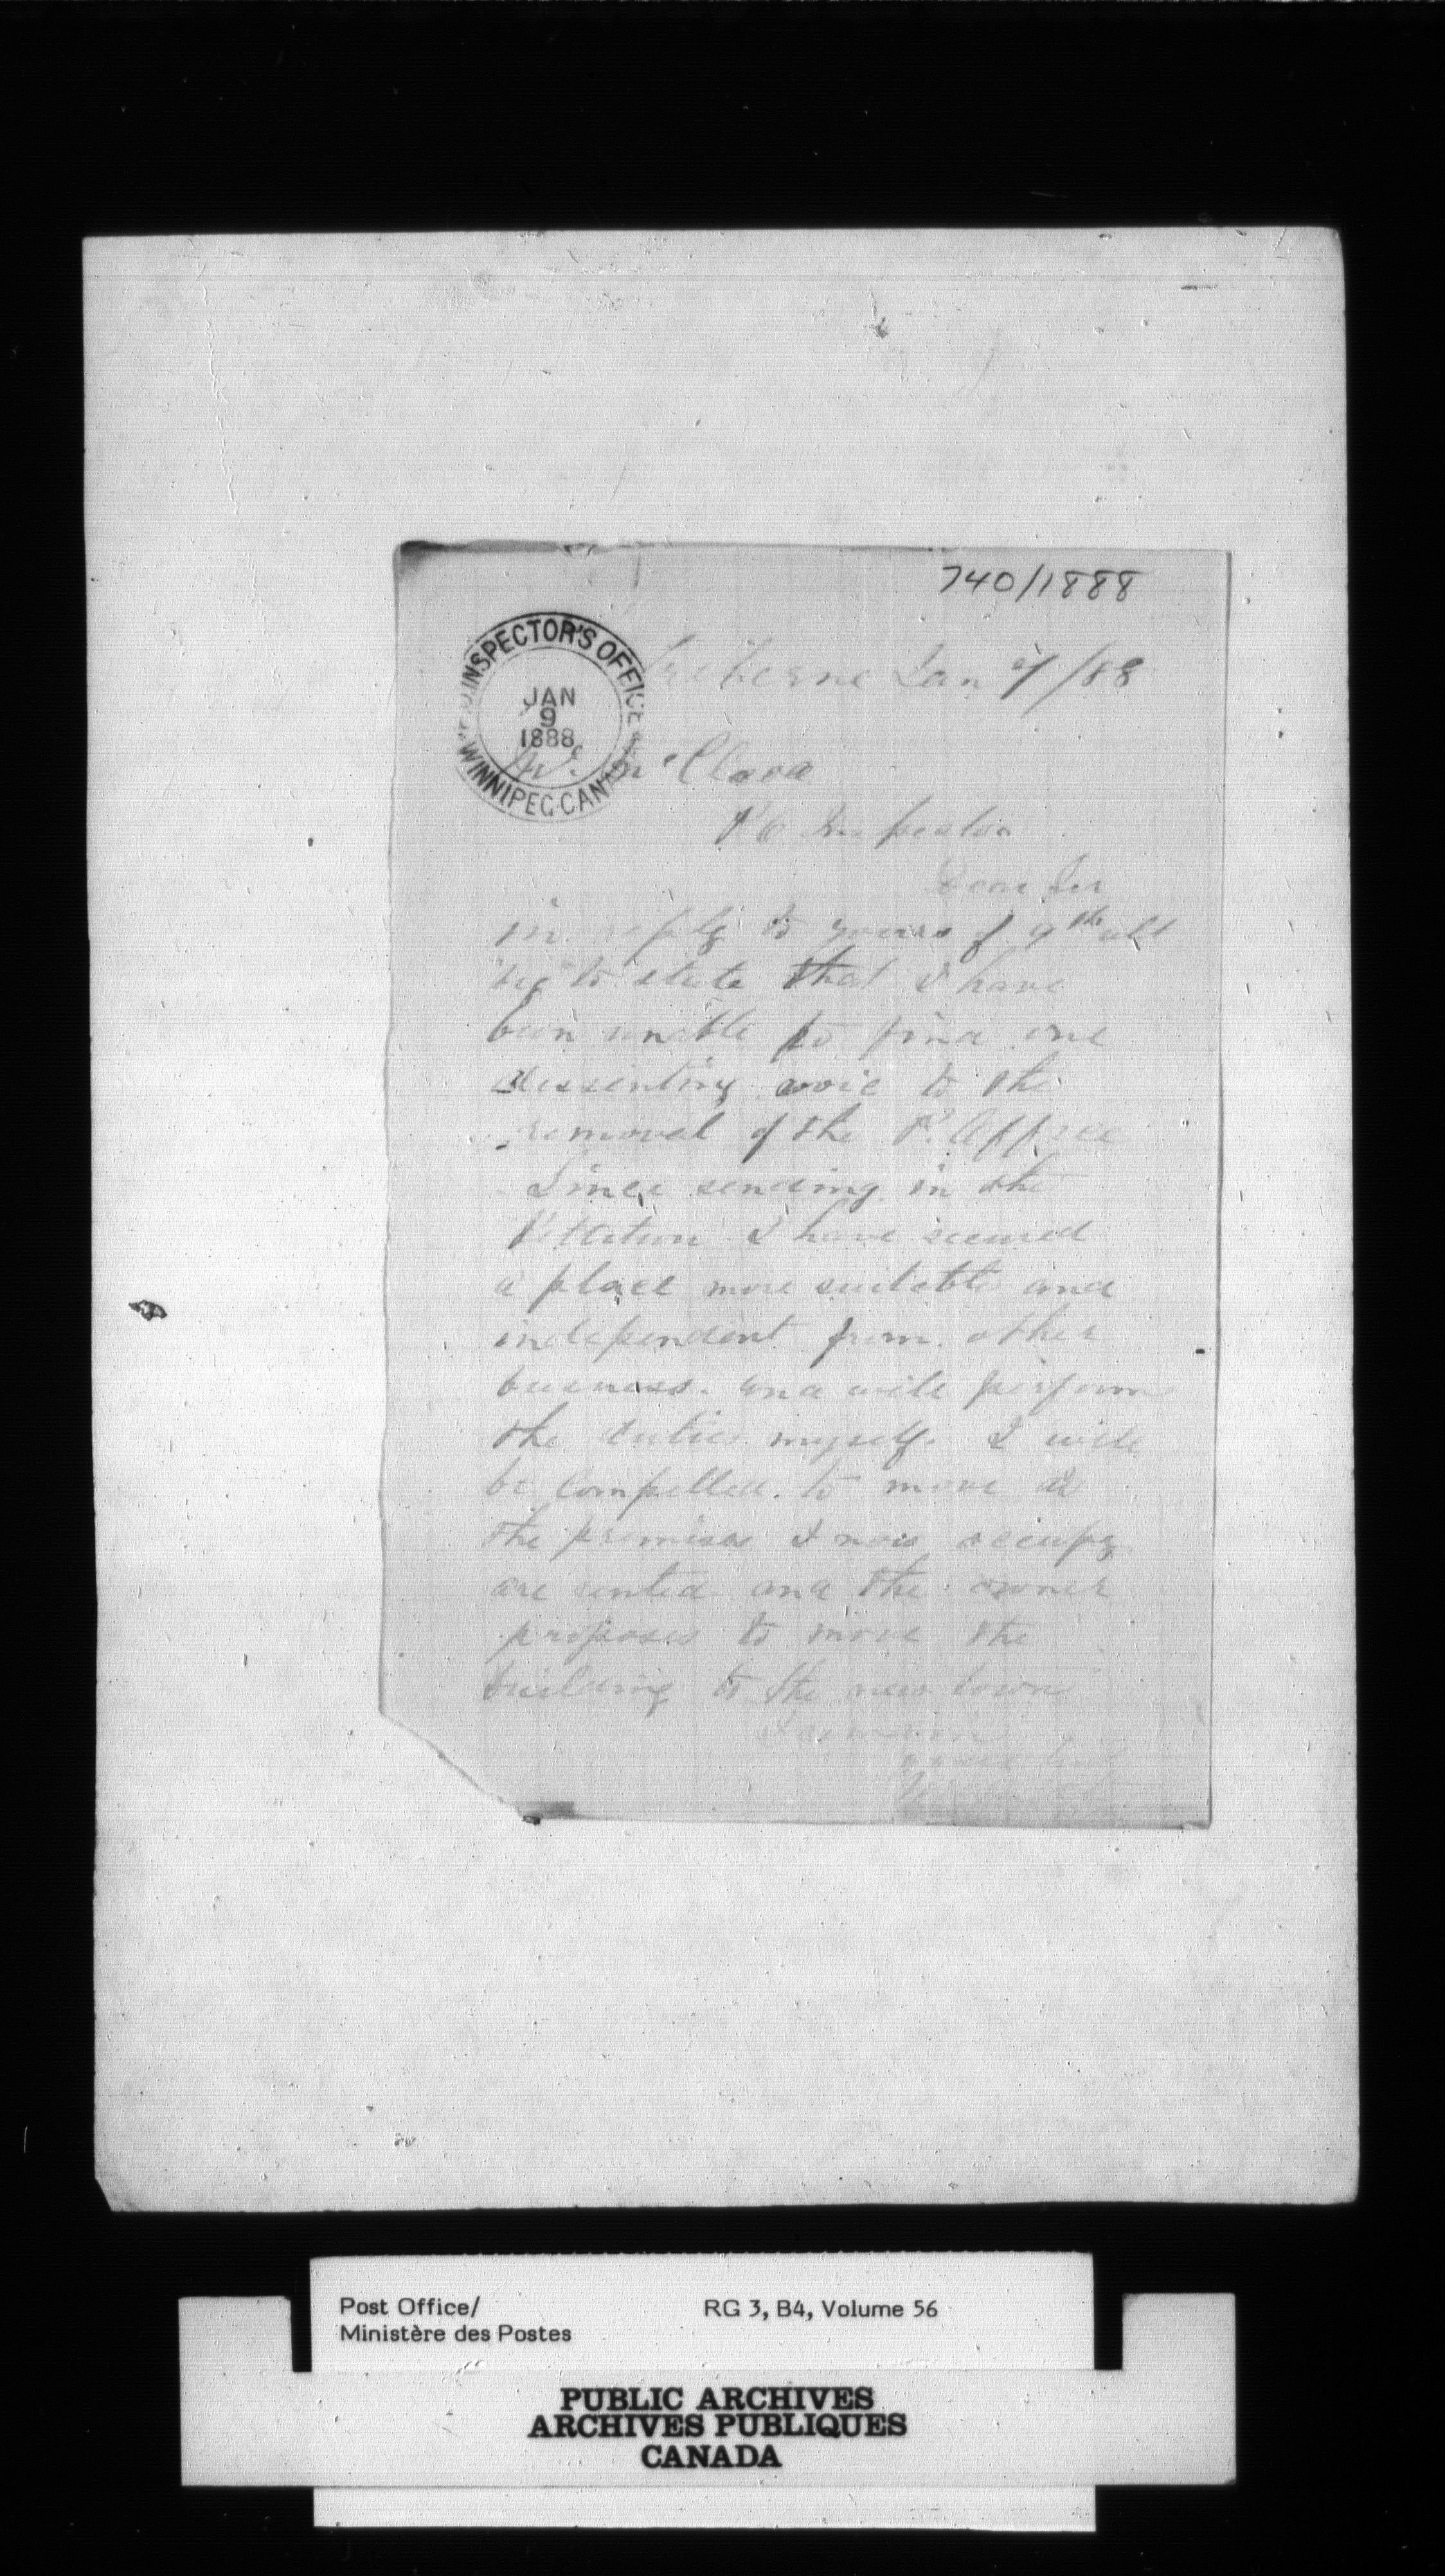 740/1888
P.O. INSPECTOR'S OFFICE
JAN
9
1888
WINNIPEG CANADA
Treherne Jan 7/88
W. McCleod
P O Inspector
Dear Sir
in reply to yours of 9th ult
beg to state that I have
been unable to find one
dissenting voic to the
removal of the P. Office
Since sending in the
Petition I have secured
a place more suitable and
independent from other
business. and will perform
the duties myself. I will
be compelled. to move as
the premises I now occupy
are rented and the owner
proposes to move the
building to the new town
I remain
Post Office/
Ministère des Postes
RG 3, B4, Volume 56
PUBLIC ARCHIVES
ARCHIVES PUBLIQUES
CANADA